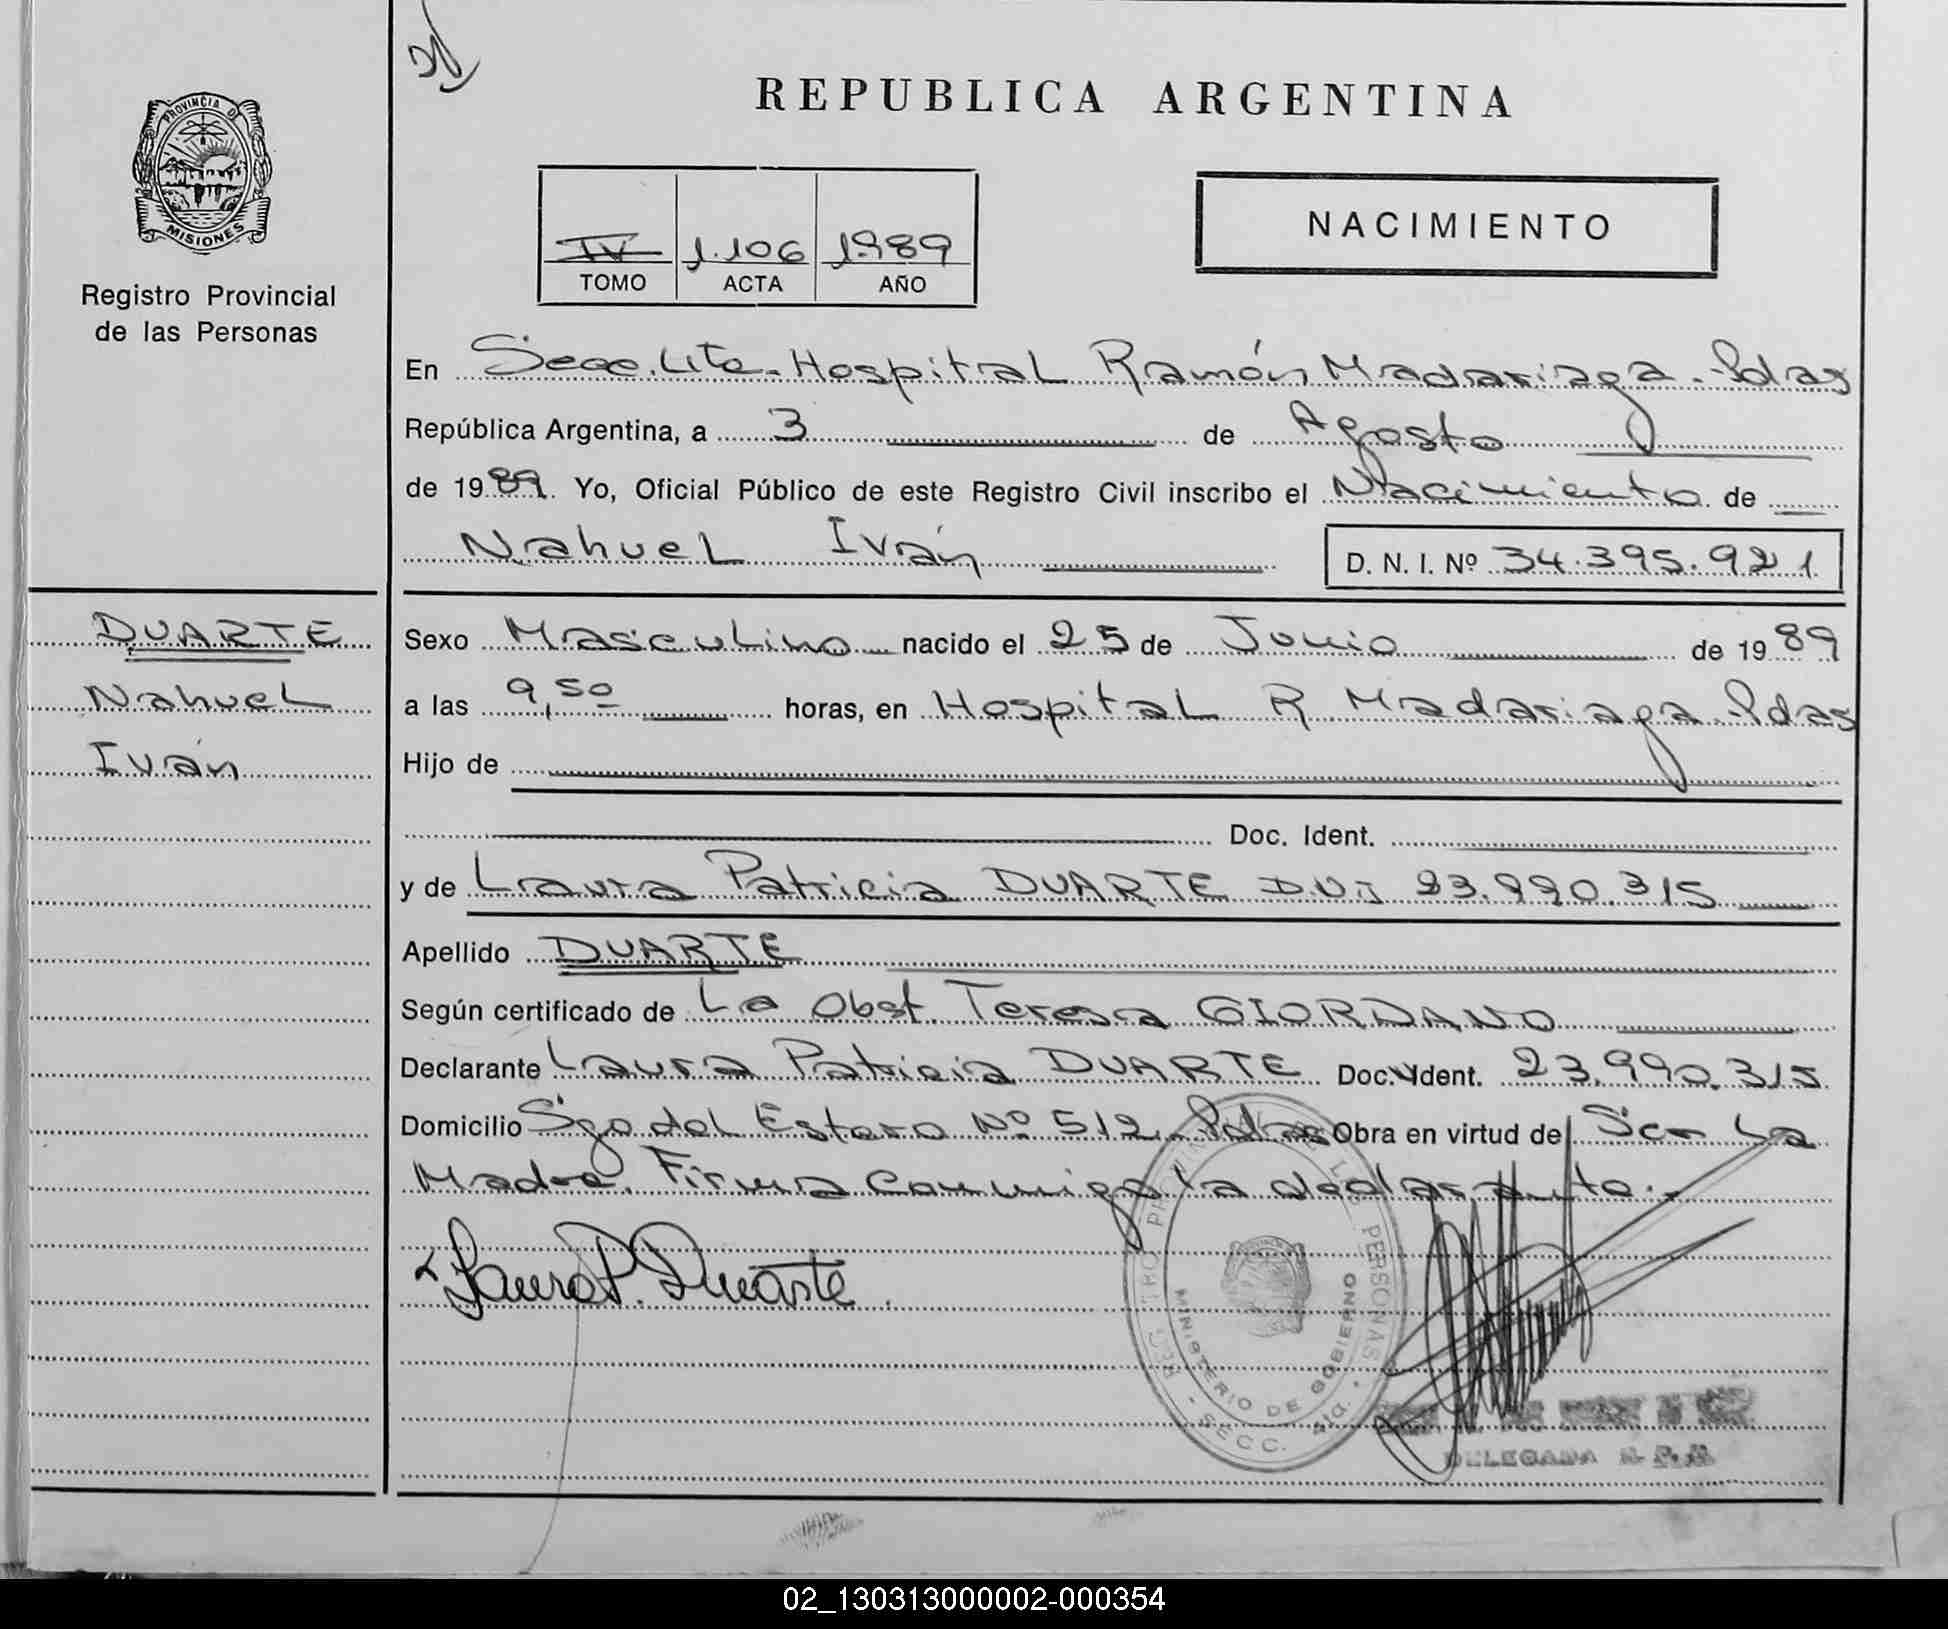 REPUBLICA ARGENTINA
PROVINCIA DE
MISIONES
Registro Provincial
de las Personas
IV 1.106 1989
TOMO ACTA AÑO
NACIMIENTO
En Secc. Lite. Hospital Ramón Madariaga. Pdas
República Argentina, a 3 de Agosto
de 1989. Yo, Oficial Público de este Registro Civil inscribo el Nacimiento de
Nahuel Iván D. N. I. Nº 34.395.921
DUARTE
Nahuel
Iván
Sexo Masculino nacido el 25 de Junio de 1989
a las 9,50 horas, en Hospital R Madariaga. Pdas
Hijo de
Doc. Ident.
y de Laura Patricia DUARTE D.N.I 23.990.315
Apellido DUARTE
Según certificado de La Obst. Teresa GIORDANO
Declarante Laura Patricia DUARTE Doc. Ident. 23.990.315
Domicilio Sgo del Estero Nº 512 Pdas Obra en virtud de Ser La
Madre. Firma conmigo la declarante.-
Laura P. Duarte
REG TRO PROVIN LAS PERSONAS
MINISTERIO DE GOBIERNO
SECC.
DELEGADA
02_130313000002-000354